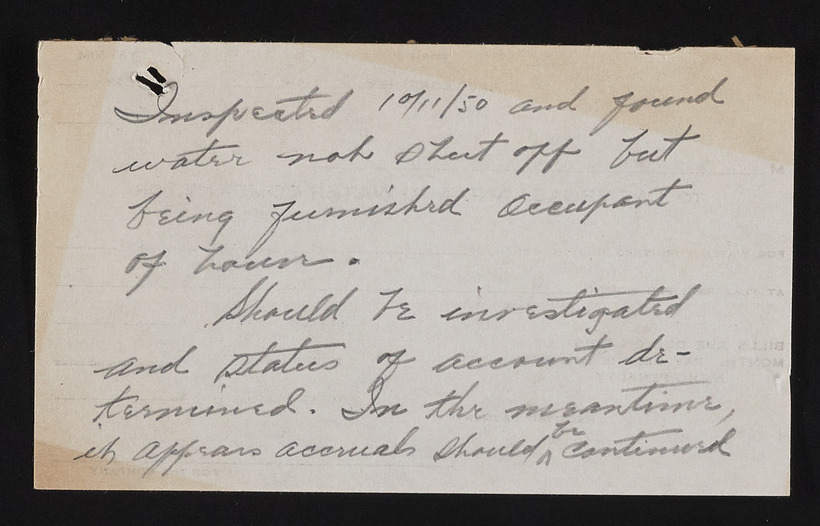 Inspected 10/11/50 and found
water not shut off but
being furnished occupant
of house.
Should be investigated
and status of account de-
termined. In the meantime,
it appears accruals should be continued